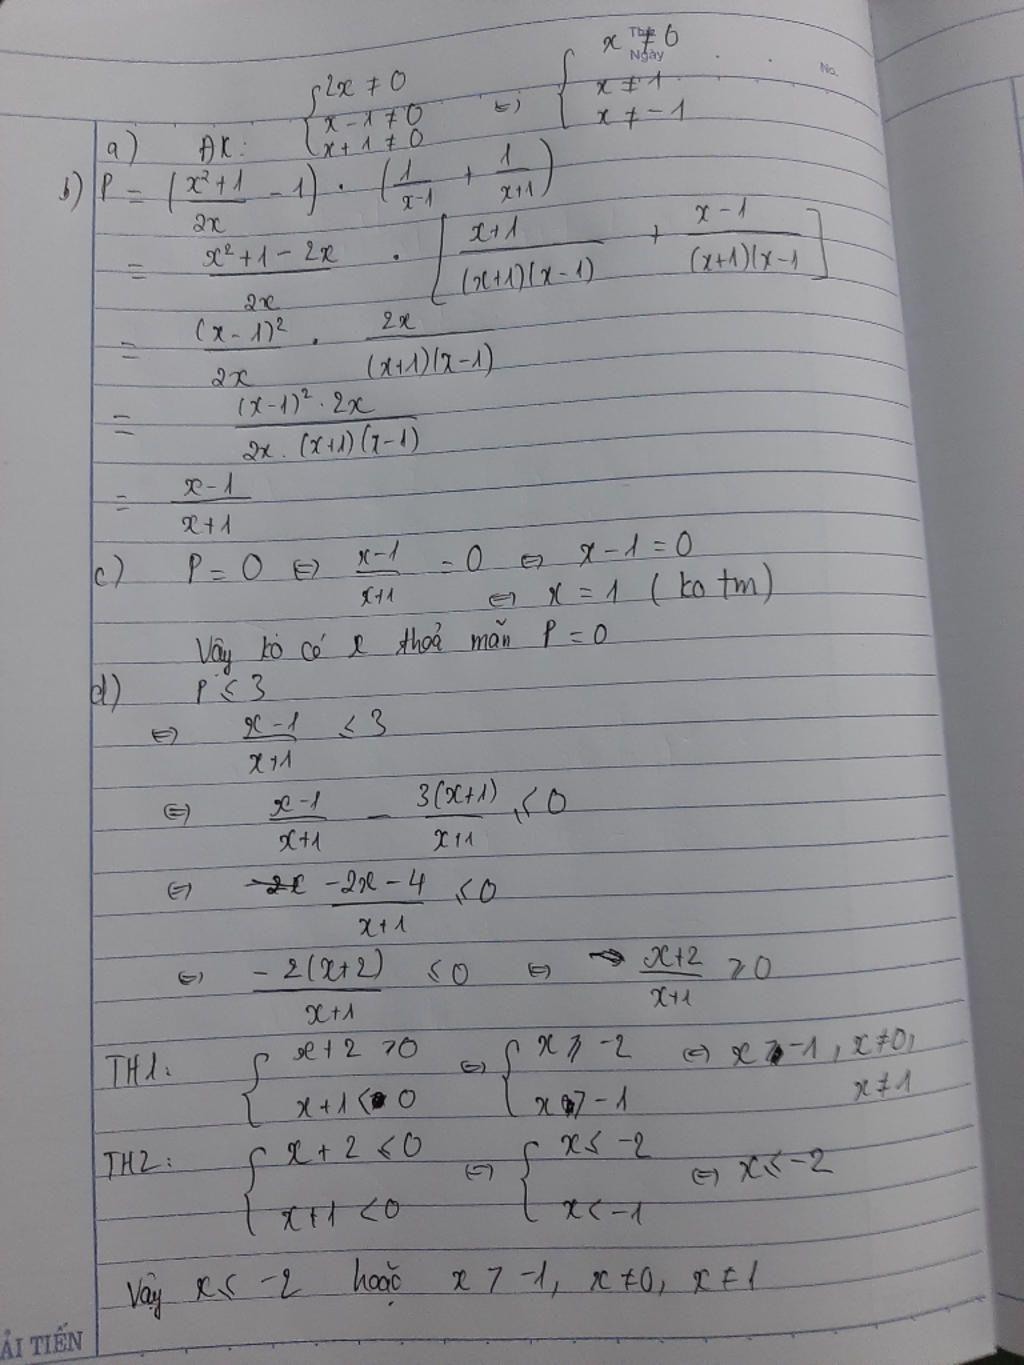 Thứ
Ngày
No.
a) ĐK: { 2x ≠ 0 ⇔ { x ≠ 0
x - 1 ≠ 0 x ≠ 1
x + 1 ≠ 0 x ≠ -1
b) P = ( (x² + 1)/2x - 1 ) . ( 1/(x-1) + 1/(x+1) )
= (x² + 1 - 2x)/2x . [ (x+1)/((x+1)(x-1)) + (x-1)/((x+1)(x-1) ]
= (x-1)²/2x . 2x/((x+1)(x-1))
= ((x-1)² . 2x)/(2x . (x+1)(x-1))
= (x-1)/(x+1)
c) P = 0 ⇔ (x-1)/(x+1) = 0 ⇔ x - 1 = 0
⇔ x = 1 ( ko tm)
Vậy ko có x thoả mãn P = 0
d) P ≤ 3
⇔ (x-1)/(x+1) ≤ 3
⇔ (x-1)/(x+1) - 3(x+1)/(x+1) ≤ 0
⇔ (-2x - 4)/(x+1) ≤ 0
⇔ -2(x+2)/(x+1) ≤ 0 ⇔ (x+2)/(x+1) ≥ 0
TH1: { x+2 ≥ 0 ⇔ { x ≥ -2 ⇔ x > -1, x ≠ 0,
x+1 0 x > -1 x ≠ 1
TH2: { x + 2 ≤ 0 ⇔ { x ≤ -2 ⇔ x ≤ -2
x+1 < 0 x < -1
Vậy x ≤ -2 hoặc x > -1, x ≠ 0, x ≠ 1
ẢI TIẾN